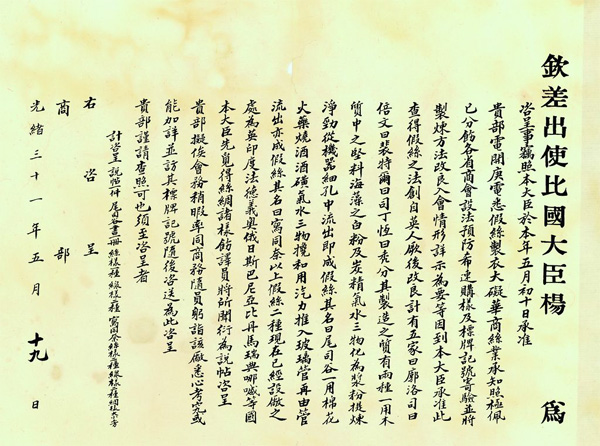 欽差出使比國大臣楊 為
咨呈事竊照本大臣於本年五月初十日承准
貴部電開庚電悉假絲製衣大礙華商絲業承知照極佩
已分飭各省商會設法預防希速購樣及標牌記號寄驗並將
製煉方法改良入會情形詳示為要等因到本大臣承准此
查得假絲之法創自英人厥後改良計有五家曰廓洛司曰
倍文曰裝特爾曰司丁恆曰禿分其製造之質有兩種一用木
質中之堅料海藻之白粉及炭精氣水三物化為漿粉提煉
淨勁從機器細孔中流出即成假絲其名曰尾司谷一用棉花
火藥燒酒酒磺氣水三物攪和用汽力推入玻璃管再由管
流出亦成假絲其名曰寫同奈以上假絲二種現在已經設廠之
處為英印度法德義奧俄日斯巴尼亞比丹馬瑞典哪喊等國
本大臣先覓得絲綢諸樣飭譯員將所聞衍為說帖咨呈
貴部擬俟會務稍暇專同商務隨員躬詣該廠悉心考究或
能加詳並訪其標牌記號隨後咨送為此咨呈
貴部謹請查照可也須至咨呈者
計咨呈 說帖一件 尾司谷書一冊 絲樣一種 線樣一種 寫同奈絲樣一種
右咨呈
商部
光緒三十一年五月 十九 日